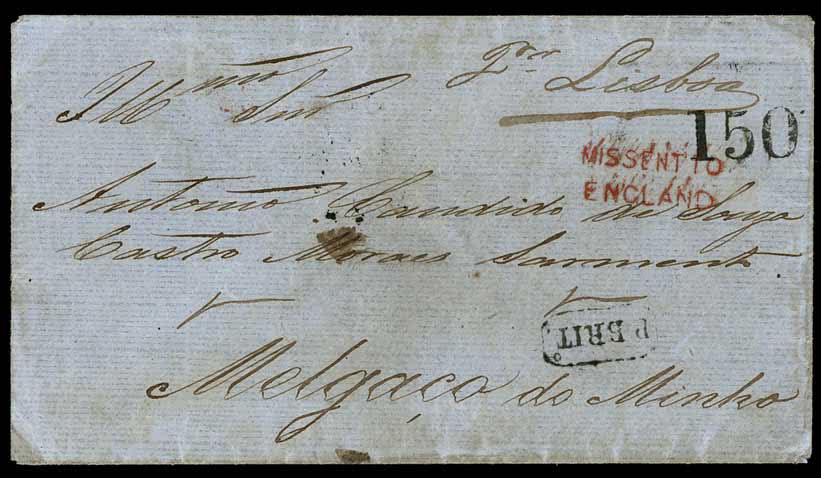 Por Lisboa
Illmo Snr
150
MISSENT TO
ENGLAND
Antonio Candido de Souza
Castro Moraes Sarmento
P. BRIT.
Melgaço do Minho